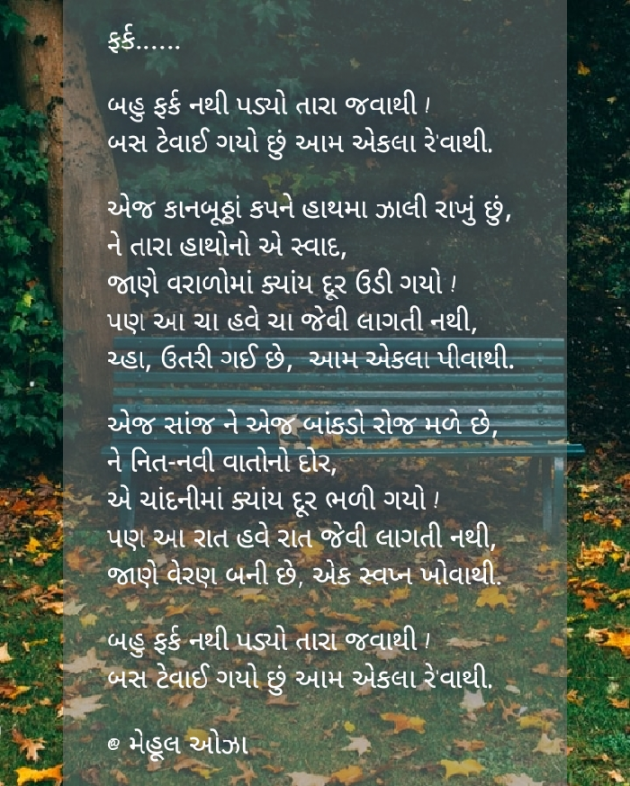 ફર્ક......
બહુ ફર્ક નથી પડ્યો તારા જવાથી !
બસ ટેવાઈ ગયો છું આમ એકલા રે'વાથી.
એજ કાનબૂઠ્ઠાં કપને હાથમા ઝાલી રાખું છું,
ને તારા હાથોનો એ સ્વાદ,
જાણે વરાળોમાં ક્યાંય દૂર ઉડી ગયો !
પણ આ ચા હવે ચા જેવી લાગતી નથી,
ચ્હા, ઉતરી ગઈ છે, આમ એકલા પીવાથી.
એજ સાંજ ને એજ બાંકડો રોજ મળે છે,
ને નિત-નવી વાતોનો દોર,
એ ચાંદનીમાં ક્યાંય દૂર ભળી ગયો !
પણ આ રાત હવે રાત જેવી લાગતી નથી,
જાણે વેરણ બની છે, એક સ્વપ્ન ખોવાથી.
બહુ ફર્ક નથી પડ્યો તારા જવાથી !
બસ ટેવાઈ ગયો છું આમ એકલા રે'વાથી.
@ મેહૂલ ઓઝા